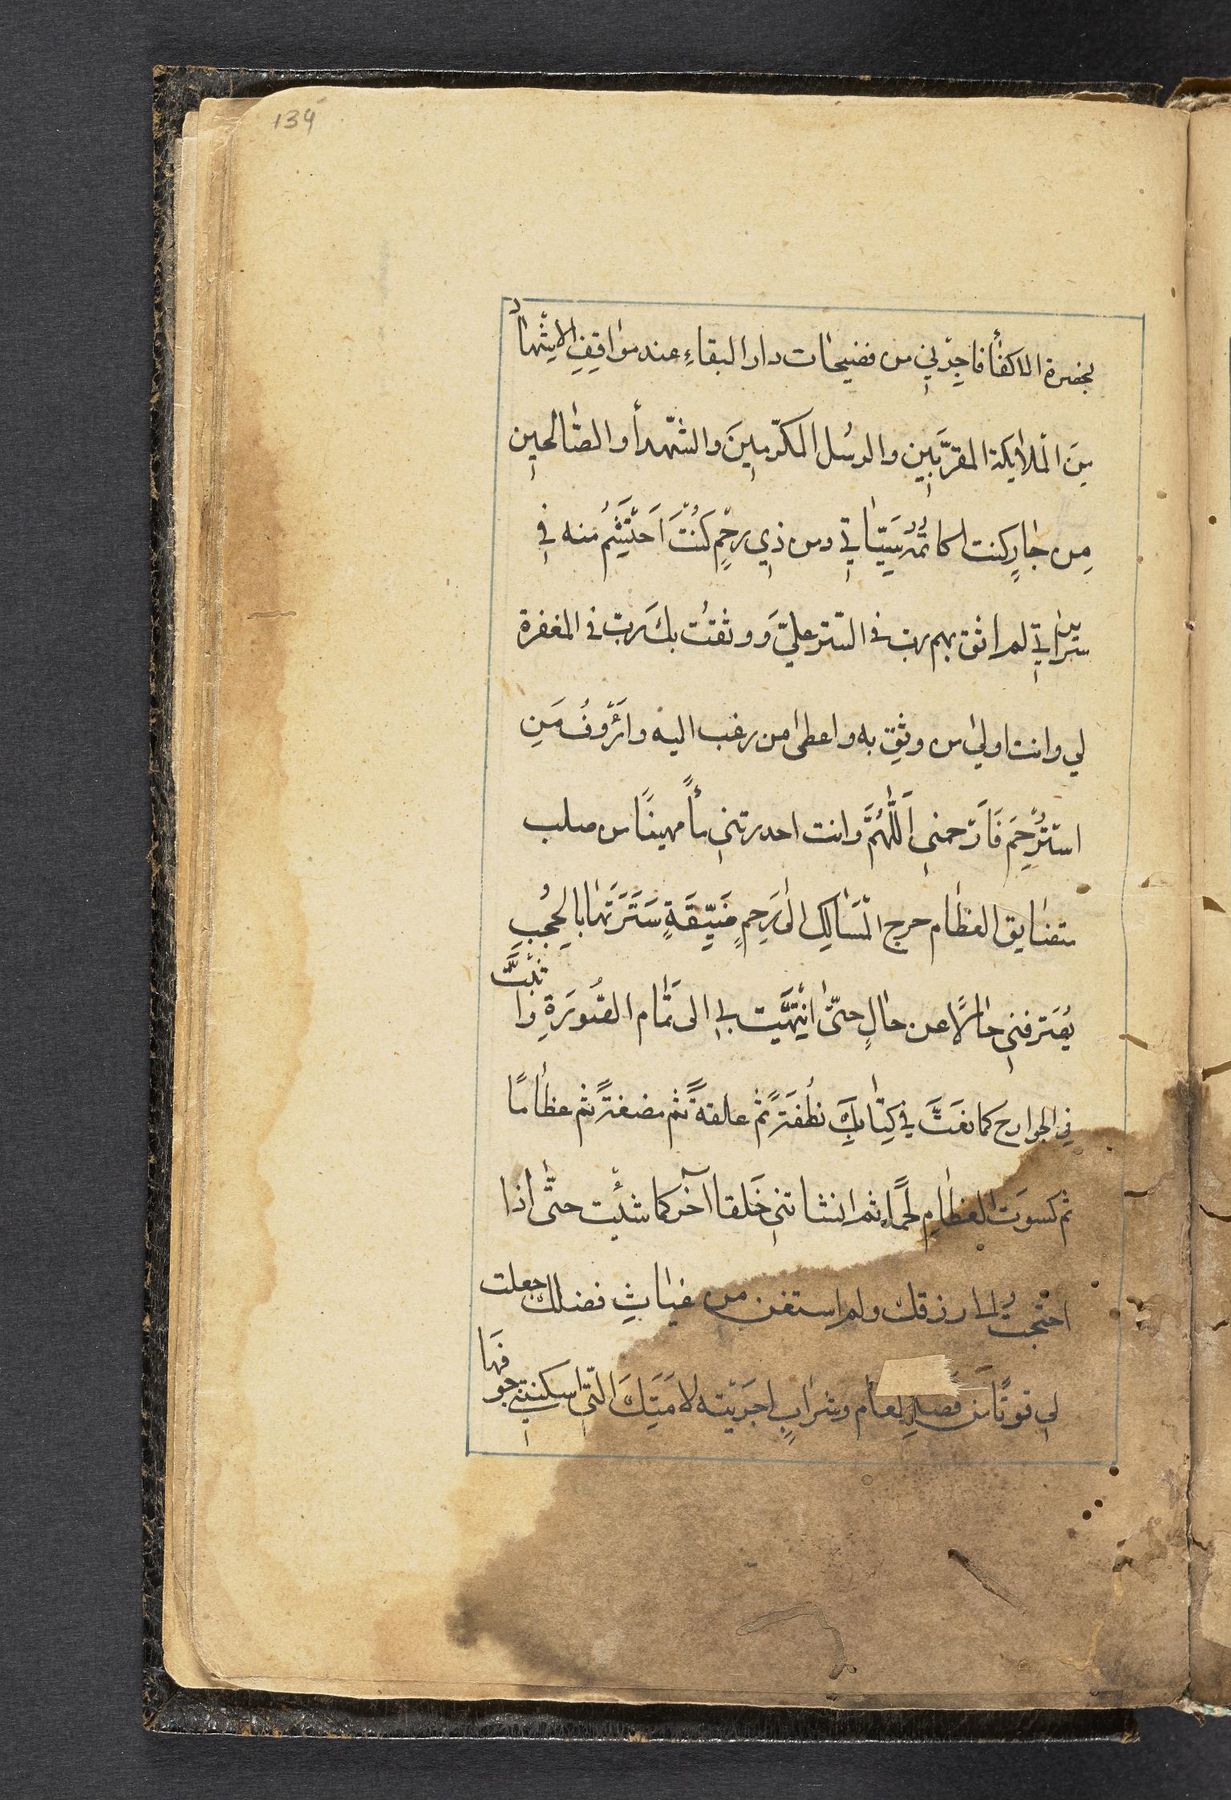 139
بحضرة الاكفأ فاجرني من فضيحات دار البقاءِ عند مواقِفِ الاشهاد
مِنَ الملايكة المقرّبين والرسُل المكرّمينَ والشّهدأ والصّالحين
مِن جارٍ كنت اكاتمُه سَيّئاتي ومن ذي رحِمٍ كنتُ احتَشِمُ منه في
سَريراتي لم اثق بهم ربّ في السّتر عليّ ووثقتُ بك ربّ في المغفرة
لي وانت اولي من وثِق به واعطى من رغب اليه وارؤفُ مَنِ
استُرْحِمَ فَارْحمني اَللّٰهُمَّ وانت احدرتني مأً مهينًا من صلب
متضايق العظام حرج المَسالِك الى رَحِمٍ ضَيِّقَةٍ سَتَرتَها بالحُجُبِ
يُصَرفني حالًا عن حالٍ حتّى انتَهَيت بي الى تَمام الصُّورَةِ واثبَتَّ
فِي الجوارح كما نعَتَّ في كِتابِكَ نُطفَةً ثم علقةً ثم مضغةً ثم عظامًا
ثم كسوت العظام لحمًا ثم انشاتني خَلقا آخر كما شئت حتّى اذا
احتجت الى رزقك ولم استغن من غياثِ فضلك جعلت
لي قوتًا من فضلِ طعام وشرابٍ اجريته لامَتِكَ الّتي اسكنتني جوفها